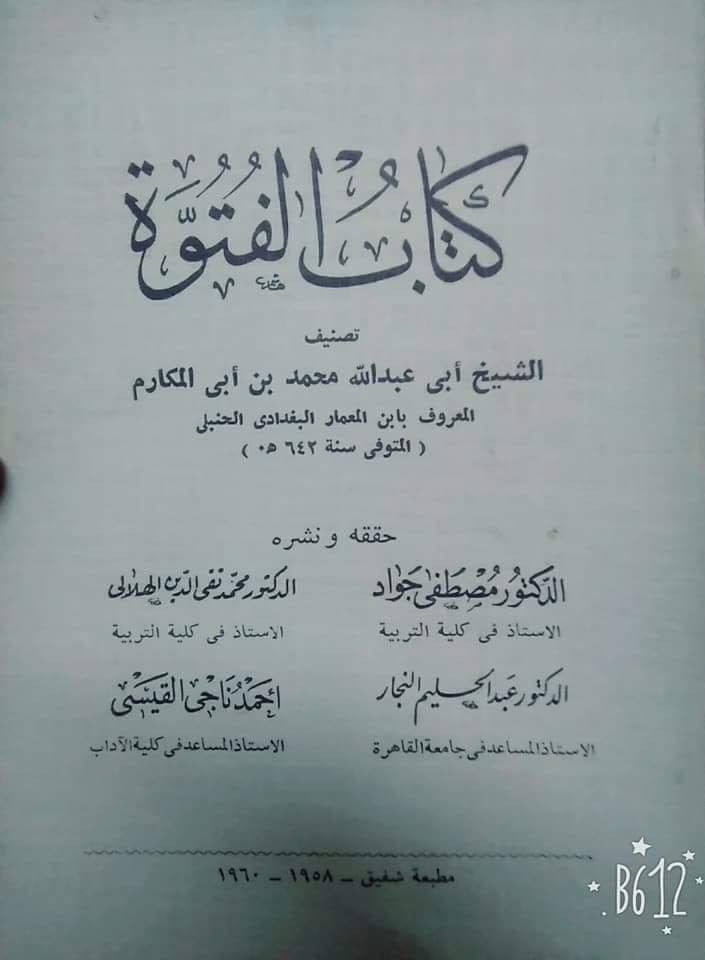 كتاب الفتوة
تصنيف
الشيخ أبى عبدالله محمد بن أبى المكارم
المعروف بابن المعمار البغدادى الحنبلى
( المتوفى سنة ٦٤٢ هـ )
حققه و نشره
الدكتور مصطفى جواد
الاستاذ فى كلية التربية
الدكتور محمد تقى الدين الهلالى
الاستاذ فى كلية التربية
الدكتور عبد الحليم النجار
الاستاذ المساعد فى جامعة القاهرة
أحمد ناجى القيسى
الاستاذ المساعد فى كلية الآداب
مطبعة شفيق – ١٩٥٨ – ١٩٦٠
B612